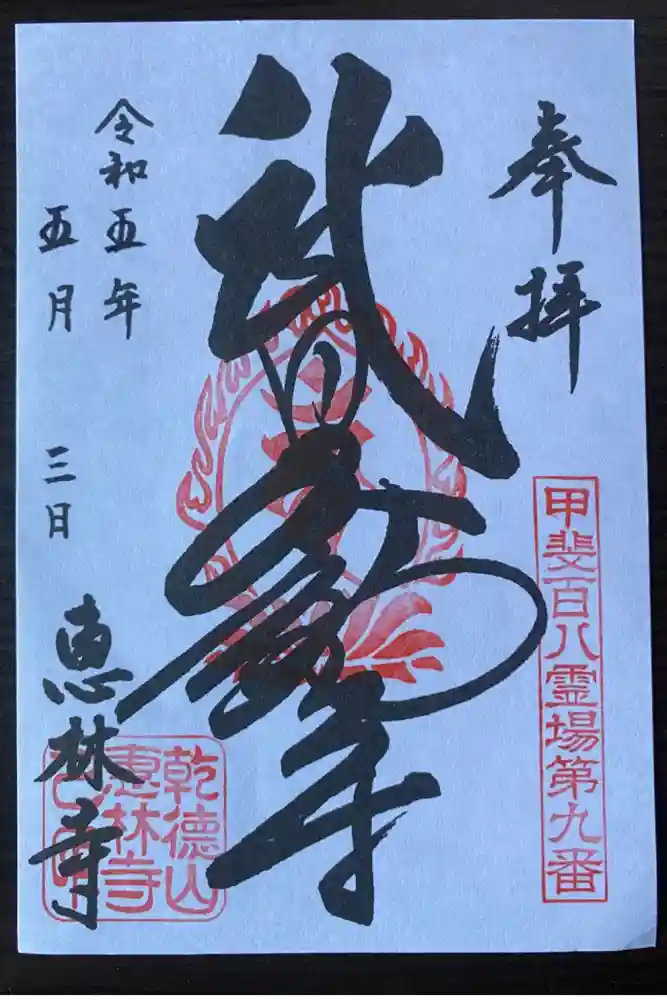 奉拝
甲斐百八霊場第九番
武田不動尊
令和五年
五月三日
恵林寺
乾徳山
恵林寺